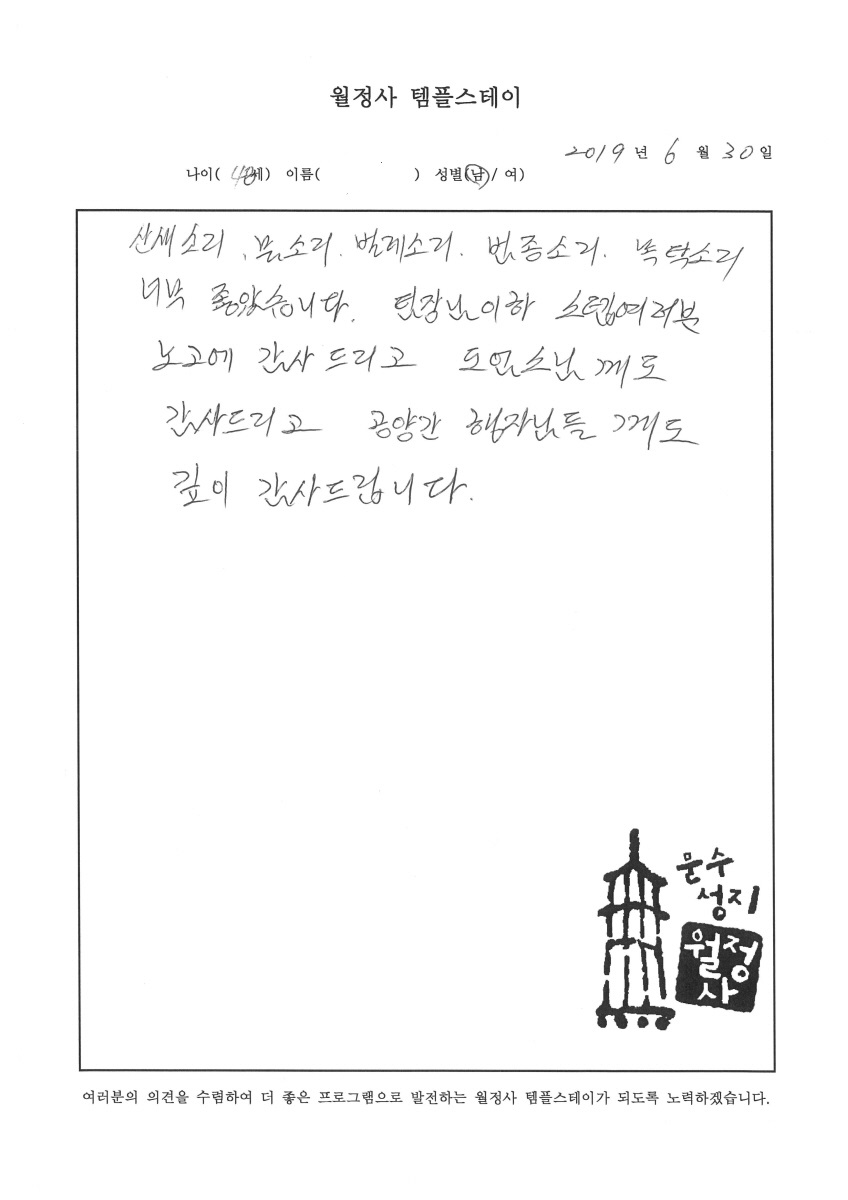 월정사 템플스테이
2019 년 6 월 30 일
나이( 48세) 이름( ) 성별(남 / 여)
산새소리, 물소리. 벌레소리. 범종소리. 목탁소리
너무 좋았습니다. 팀장님이하 스텝여러분
노고에 감사드리고 도언스님께도
감사드리고 공양간 행자님들 께도
깊이 감사드립니다.
문수
성지
월정
사
여러분의 의견을 수렴하여 더 좋은 프로그램으로 발전하는 월정사 템플스테이가 되도록 노력하겠습니다.